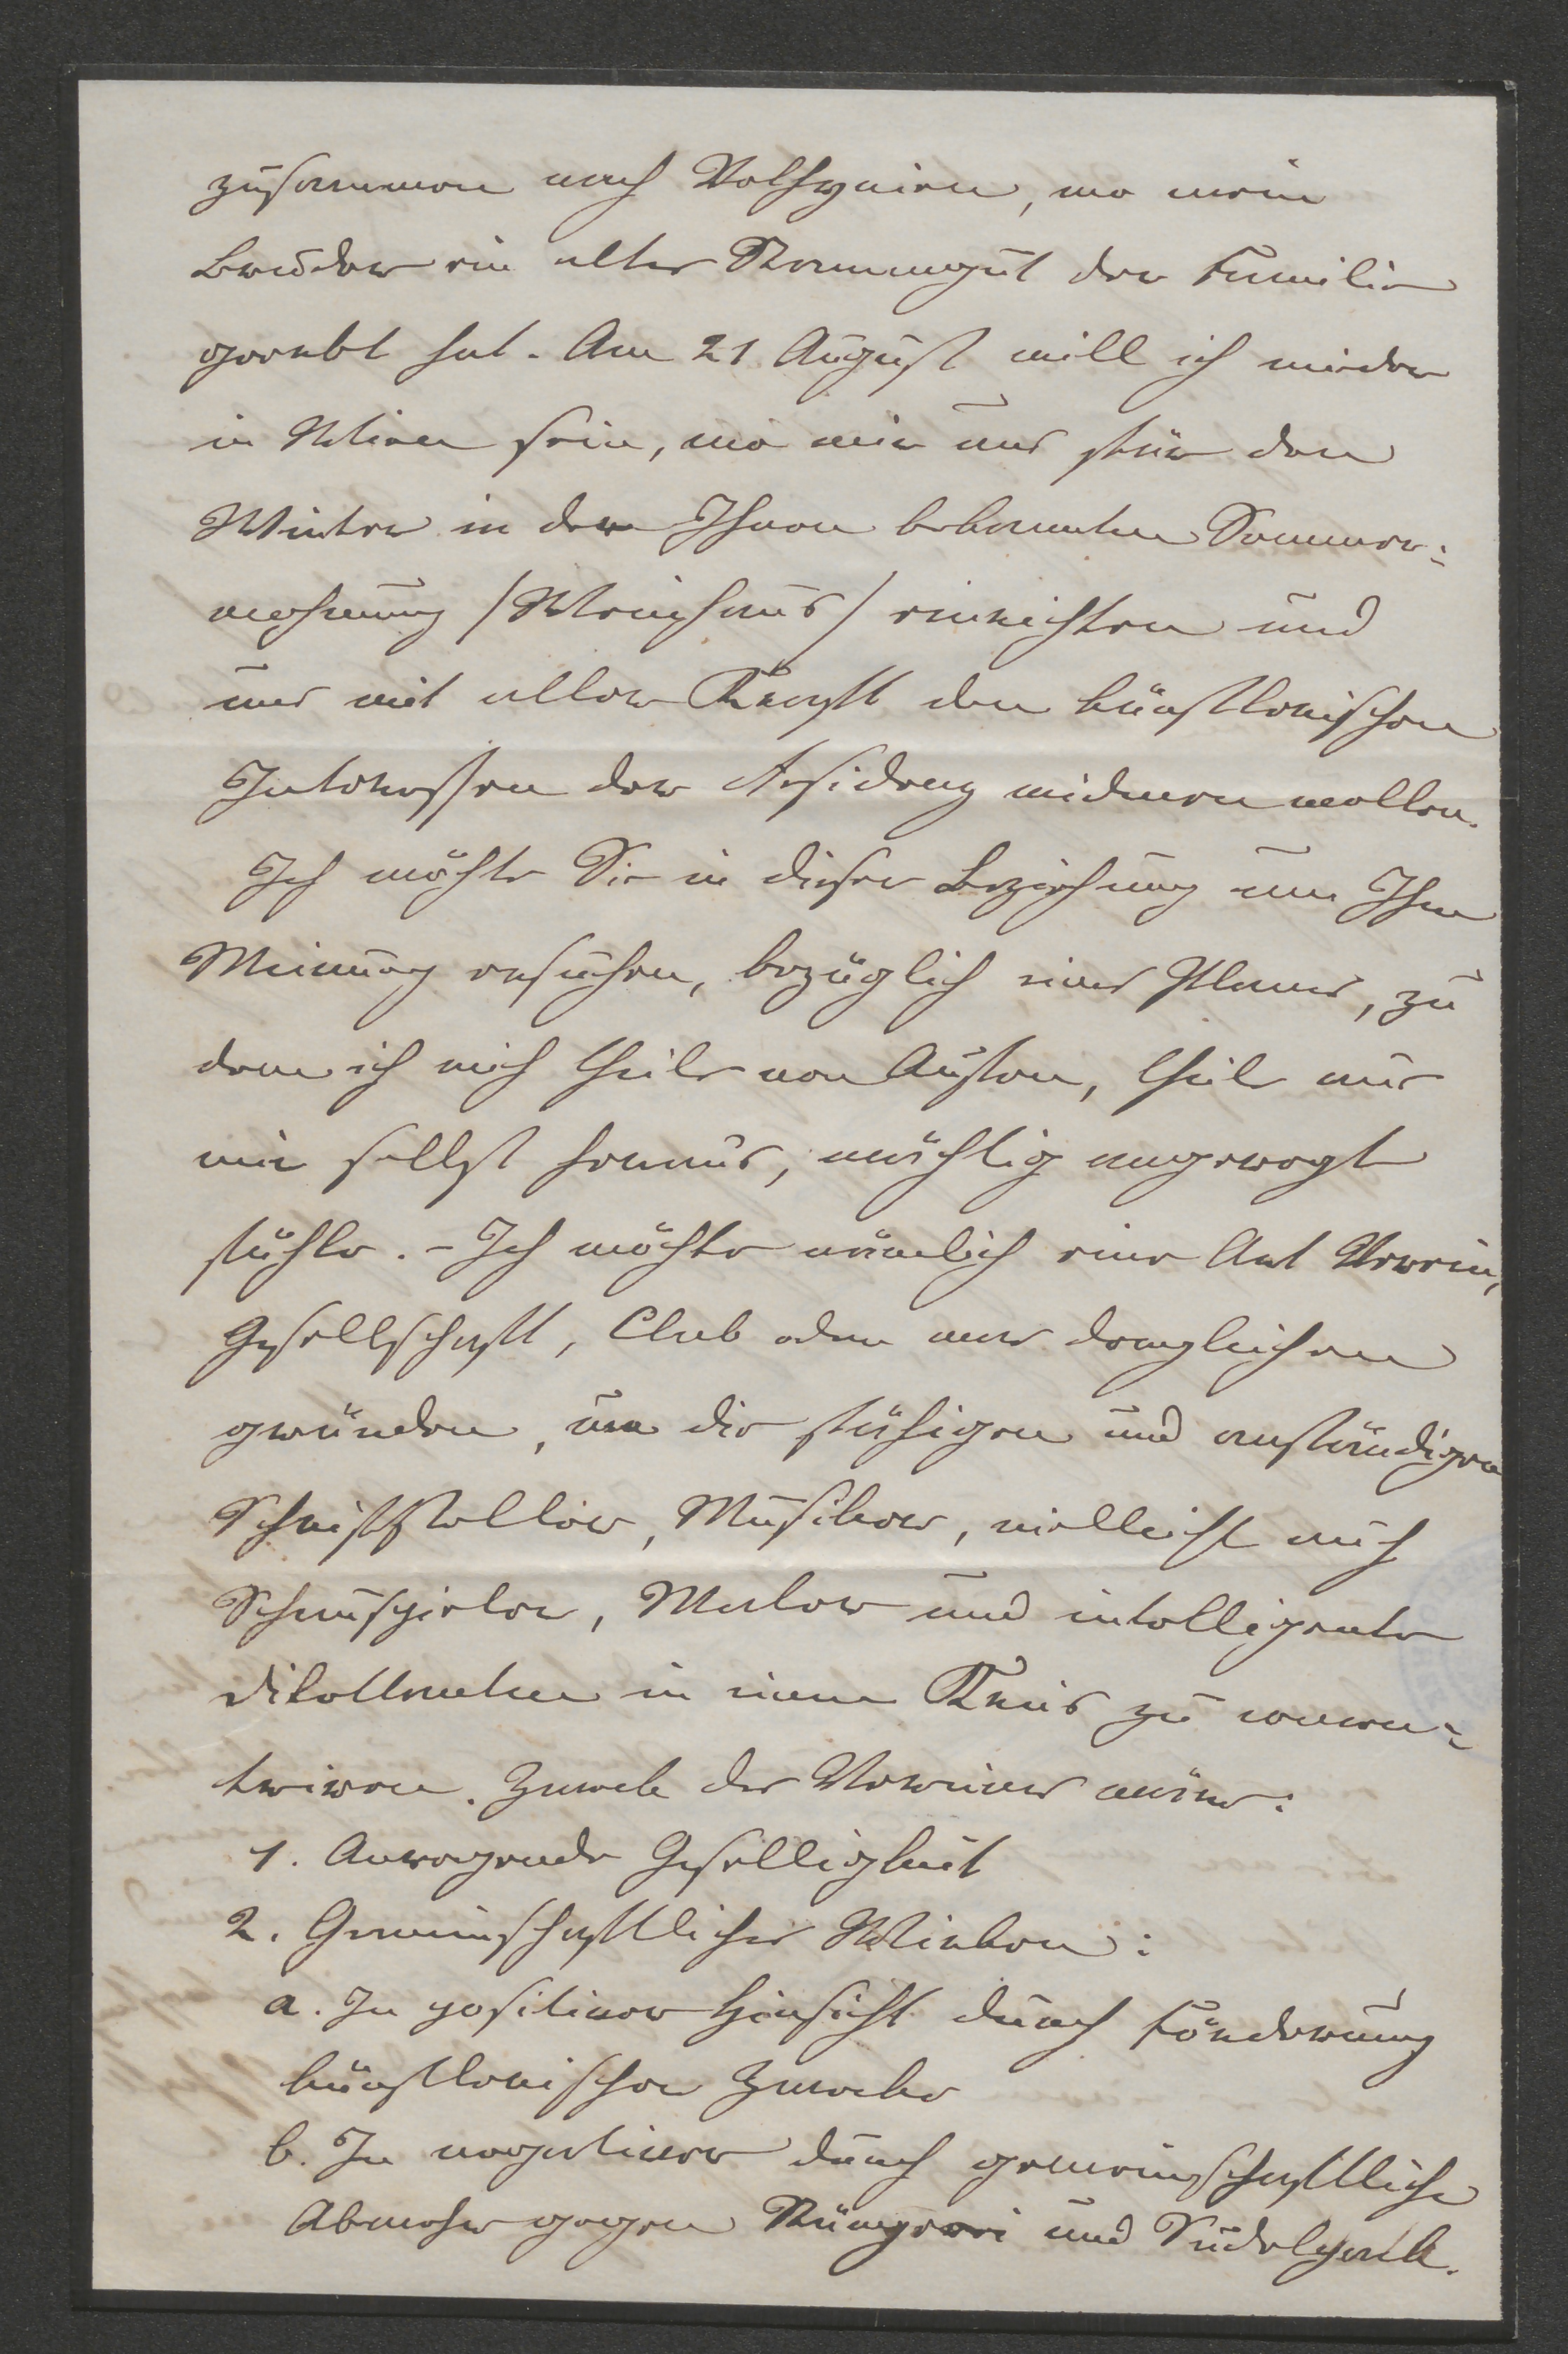 zusammen nach Volhynien, wo mein
Bruder ein altes Stammgut der Familie
geerbt hat. Am 21 August will ich wieder
in Wien sein, wo wir uns für den
Winter in der Ihnen bekannten Sommer-
wohnung /Weinhaus/ einrichten und
uns mit aller Kraft den künstlerischen
Interessen der Residenz widmen wollen.
Ich möchte Sie in dieser Beziehung um Ihre
Meinung ersuchen, bezüglich eines Planes, zu
dem ich mich theils von Außen, theils aus
mir selbst heraus, mächtig angeregt
fühle. – Ich möchte nämlich eine Art Verein,
Gesellschaft, Club oder was dergleichen
gründen, um die fähigen und anständigen
Schriftsteller, Musiker, vielleicht auch
Schauspieler, Maler und intelligente
Dilettanten in einem Kreis zu concen-
triren. Zweck des Vereines wäre:
1. Anregende Geselligkeit
2. Gemeinschaftliches Wirken:
a. In positiver Hinsicht durch Förderung
künstlerischer Zwecke
b. In negativer durch gemeinschaftliche
Abwehr gegen und Sudelpack.